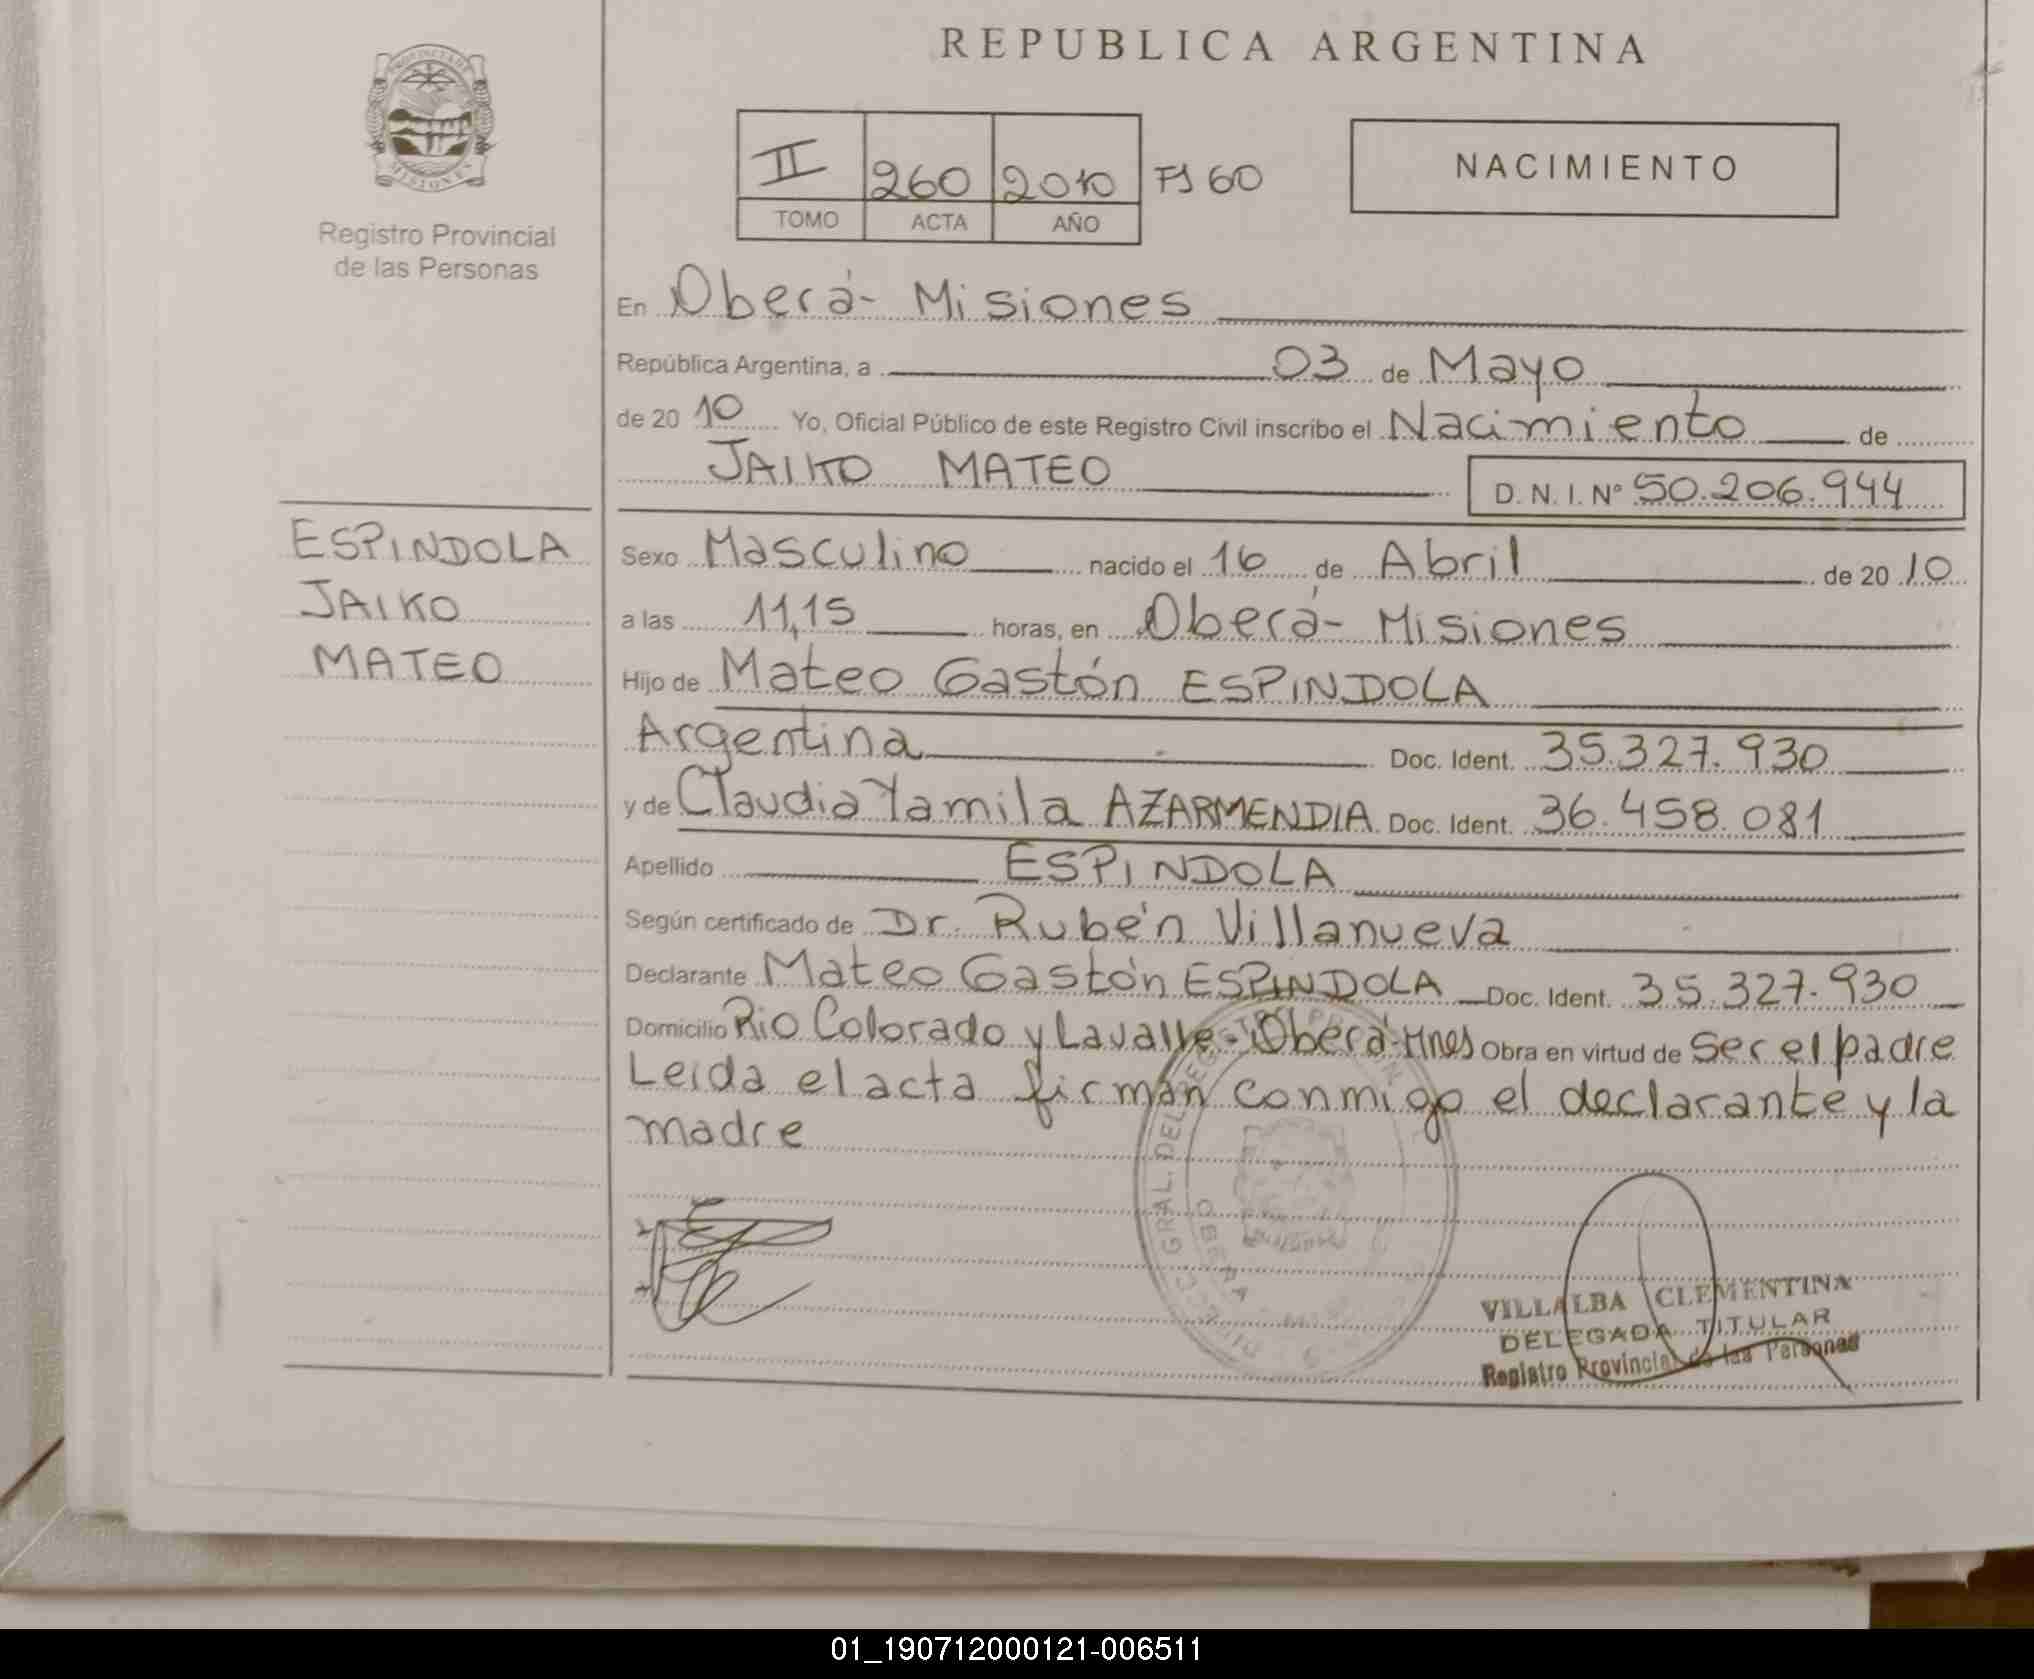 REPUBLICA ARGENTINA
PROVINCIA DE
MISIONES
Registro Provincial
de las Personas
II 260 2010 Fs 60
TOMO ACTA AÑO
NACIMIENTO
En Oberá - Misiones
República Argentina, a 03 de Mayo
de 2010 Yo, Oficial Público de este Registro Civil inscribo el Nacimiento de
JAIKO MATEO D. N. I. Nº 50.206.944
ESPINDOLA
JAIKO
MATEO
Sexo Masculino nacido el 16 de Abril de 2010
a las 11,15 horas, en Oberá - Misiones
Hijo de Mateo Gastón ESPINDOLA
Argentina Doc. Ident. 35.327.930
y de Claudia Yamila AZARMENDIA Doc. Ident. 36.458.081
Apellido ESPINDOLA
Según certificado de Dr. Rubén Villanueva
Declarante Mateo Gastón ESPINDOLA Doc. Ident. 35.327.930
Domicilio Rio Colorado y Lavalle - Oberá - Mnes Obra en virtud de Ser el padre
Leida el acta firman conmigo el declarante y la
madre
GRAL. DEL REGISTRO
OBERA
VILLALBA CLEMENTINA
DELEGADA TITULAR
Registro Provincial de las Personas
01_190712000121-006511